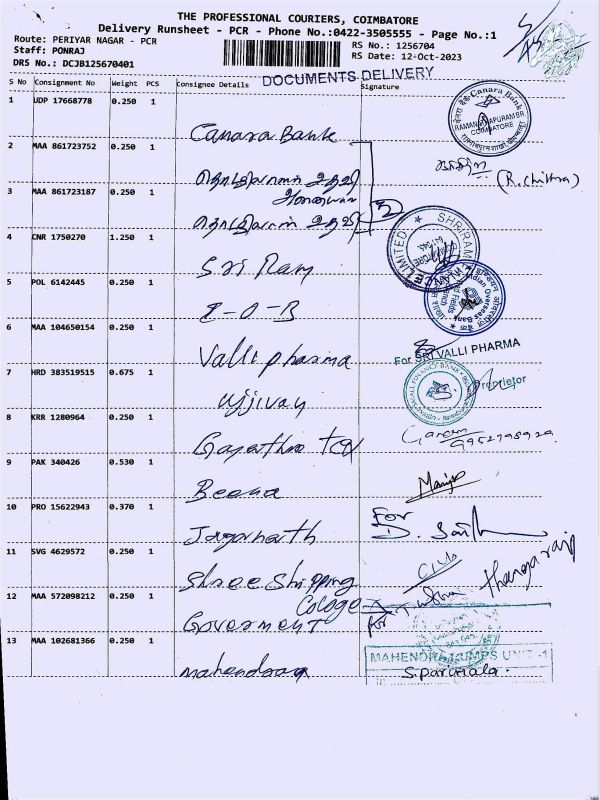 THE PROFESSIONAL COURIERS, COIMBATORE
Delivery Runsheet - PCR - Phone No.:0422-3505555 - Page No.:1
Route: PERIYAR NAGAR - PCR
RS No.: 1256704
Staff: PONRAJ
RS Date: 12-Oct-2023
DRS No.: DCJB125670401
DOCUMENTS DELIVERY
S No Consignment No Weight PCS Consignee Details Signature
1 UDP 17668778 0.250 1
Canara Bank
Canara Bank
RAMANATHAPURAM BR
COIMBATORE
2 MAA 861723752 0.250 1
தொழிலாளர் உதவி
ஆணையர்
(R. Chithra)
3 MAA 861723187 0.250 1
தொழிலாளர் உதவி
4 CNR 1750270 1.250 1
Sri Ram
SHRIRAM
LIMITED
5 POL 6142445 0.250 1
I-O-B
Indian Overseas Bank
6 MAA 104650154 0.250 1
Valli pharma
For SRI VALLI PHARMA
Proprietor
7 HRD 383519515 0.675 1
ujjivan
SMALL FINANCE BANK
8 KRR 1280964 0.250 1
9 PAK 340426 0.530 1
Beena
10 PRO 15622943 0.370 1
Jagannath
For
11 SVG 4629572 0.250 1
Shree Shipping
thangaraj
12 MAA 572098212 0.250 1
Goverment Cologe
For
13 MAA 102681366 0.250 1
MAHENDRA PUMPS UNIT -1
S. Parimala.